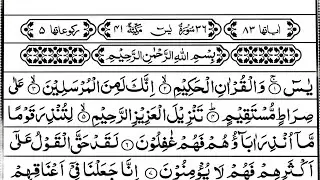 اٰیاتها ٨٣ ٣٦ سُوْرَةُ يٰسٓ مَكِّيَّةٌ ٤١ رکوعاتها ٥
بِسْمِ اللهِ الرَّحْمٰنِ الرَّحِيْمِ
يٰسٓ ۝ وَالْقُرْاٰنِ الْحَكِيْمِ ۝ اِنَّكَ لَمِنَ الْمُرْسَلِيْنَ ۝ عَلٰى
صِرَاطٍ مُّسْتَقِيْمٍ ۝ تَنْزِيْلَ الْعَزِيْزِ الرَّحِيْمِ ۝ لِتُنْذِرَ قَوْمًا
مَّآ اُنْذِرَ اٰبَآؤُهُمْ فَهُمْ غٰفِلُوْنَ ۝ لَقَدْ حَقَّ الْقَوْلُ عَلٰٓى
اَكْثَرِهِمْ فَهُمْ لَا يُؤْمِنُوْنَ ۝ اِنَّا جَعَلْنَا فِيْٓ اَعْنَاقِهِمْ